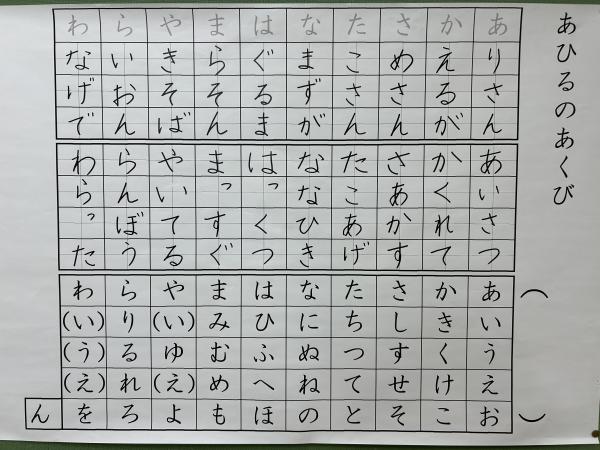 あひるのあくび
ありさん
かえるが
さめさん
たこさん
なまずが
はぐるま
まらそん
やきそば
らいおん
わなげで
あいさつ
かくれて
さあかす
たこあげ
ななひき
はっくつ
まっすぐ
やいてる
らんぼう
わらった
（　）
あいうえお
かきくけこ
さしすせそ
たちつてと
なにぬねの
はひふへほ
まみむめも
や(い)ゆ(え)よ
らりるれろ
わ(い)(う)(え)を
ん